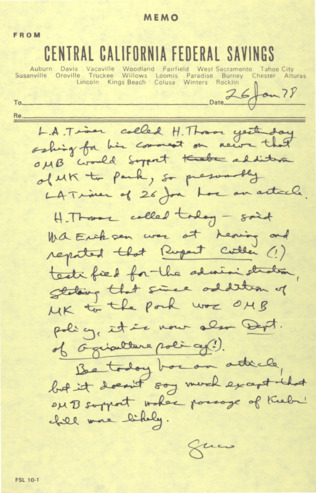 MEMO
FROM
CENTRAL CALIFORNIA FEDERAL SAVINGS
Auburn Davis Vacaville Woodland Fairfield West Sacramento Tahoe City
Susanville Oroville Truckee Willows Loomis Paradise Burney Chester Alturas
Lincoln Kings Beach Colusa Winters Rocklin
To Date 26 Jan 78
Re
L.A. Times called H. Thomas yesterday
asking for his comment on news that
OMB would support addition
of MK to Park, so presumably
LA Times of 26 Jan has an article.
H. Thomas called today - said
was at hearing and
reported that Rupert Cutler (!)
testified for the administration,
stating that since addition of
MK to the Park was OMB
policy, it is now also Dept.
of Agriculture policy (!).
Bee today has an article,
but it doesn't say much except that
OMB support makes passage of Krebs'
bill more likely.
FSL 10-1